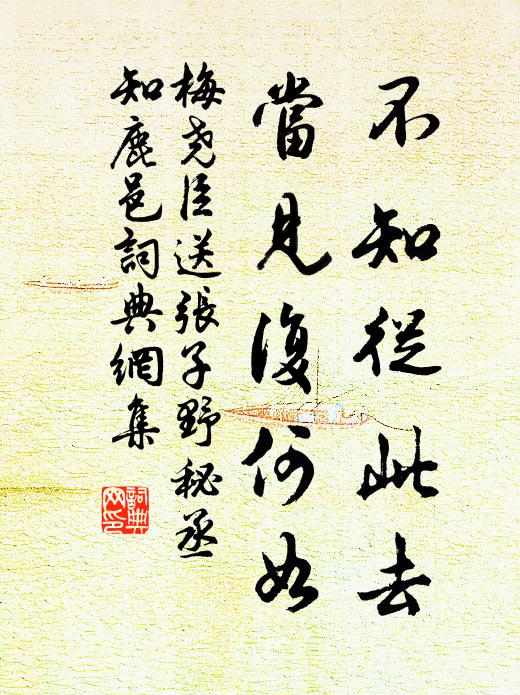 不知從此去
當見復何如
梅堯臣送張子野秘丞
知鹿邑詞典網集
詞典
网印